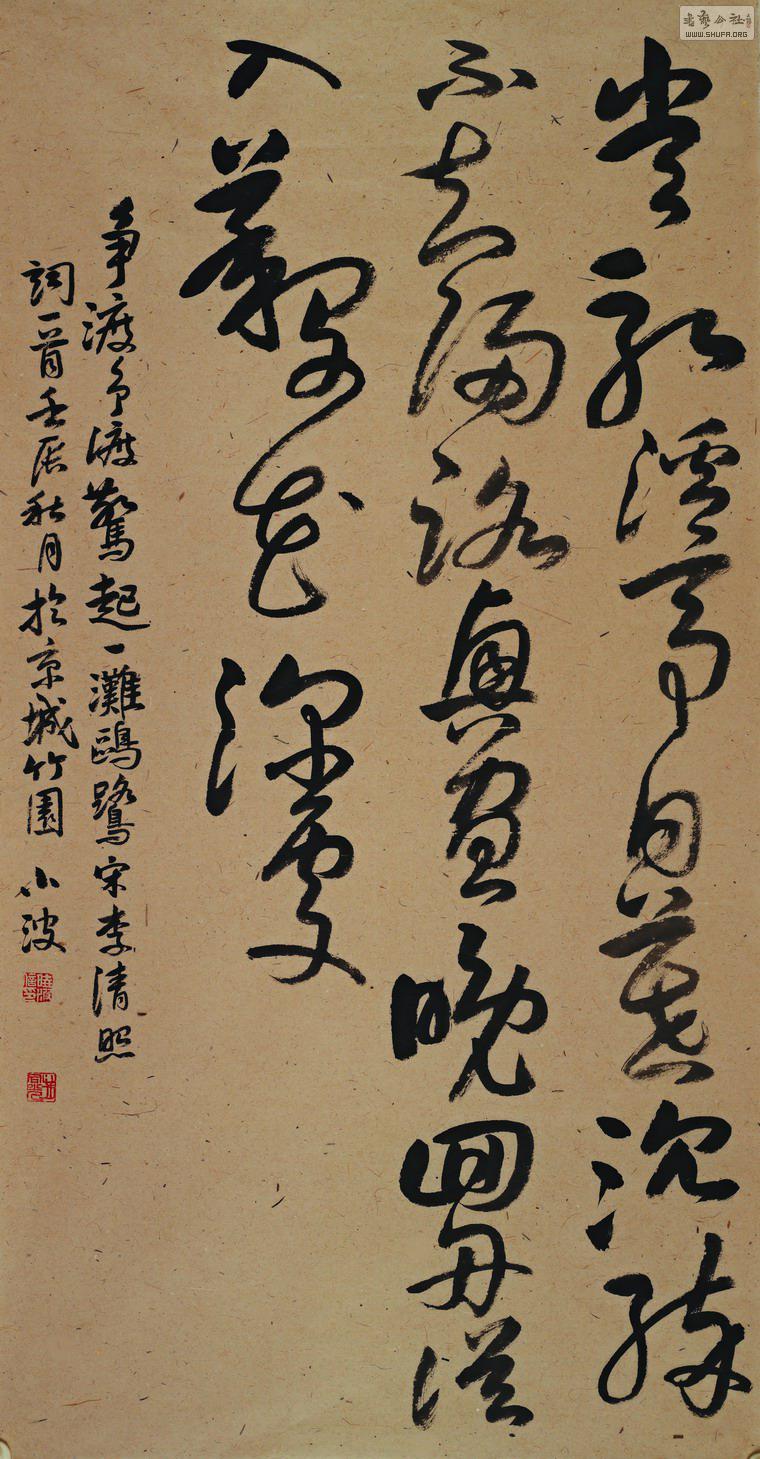 嘗記溪亭日暮沉醉
不知歸路興盡晚回舟誤
入藕花深處
爭渡爭渡驚起一灘鷗鷺宋李清照
詞一首壬辰秋月於京城竹園小波
書藝公社
WWW.SHUFA.ORG